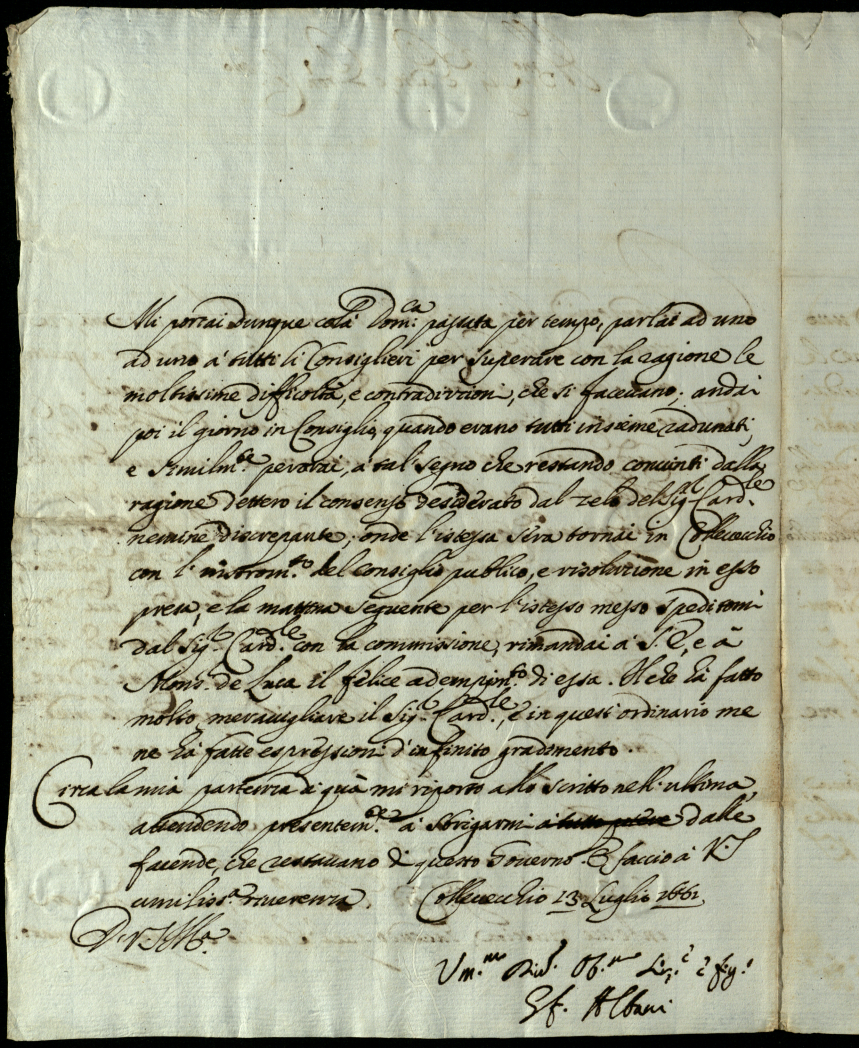 Mi portai dunque colà Dom:ca passata per tempo, parlai ad uno
ad uno à tutti li Consiglieri per superare con la ragione le
moltissime difficoltà, e contradizioni, che si facevano; andai
poi il giorno in Consiglio, quando erano tutti insieme radunati,
e similm.te perorai, a tal segno che restando convinti dalla
ragione dettero il consenso desiderato dal zelo del Sig.r Card.le
nemine discrepante; onde l'istessa sera tornai in Collevecchio
con l'instrom.to del consiglio publico, e risoluzione in esso
presa, e la mattina seguente per l'istesso messo speditomi
dal Sig.r Card.le con la commissione, rimandai à S. E, e à
Mons.r de Luca il felice adempim.to di essa. Il che hà fatto
molto meravigliare il Sig.r Card.le, e in quest'ordinario me
ne hà fatte espressioni d'infinito gradimento.
Circa la mia partenza di quà mi riporto allo scritto nell'ultima,
attendendo presentem.te à sbrigarmi dalle
facende, che restavano di questo Governo. E faccio à V.S
umiliss.a riverenza. Collevecchio 13 Luglio 1661
Di V.S Ill.ma
Um.mo Dev. Ob.mo
Gf. Albani